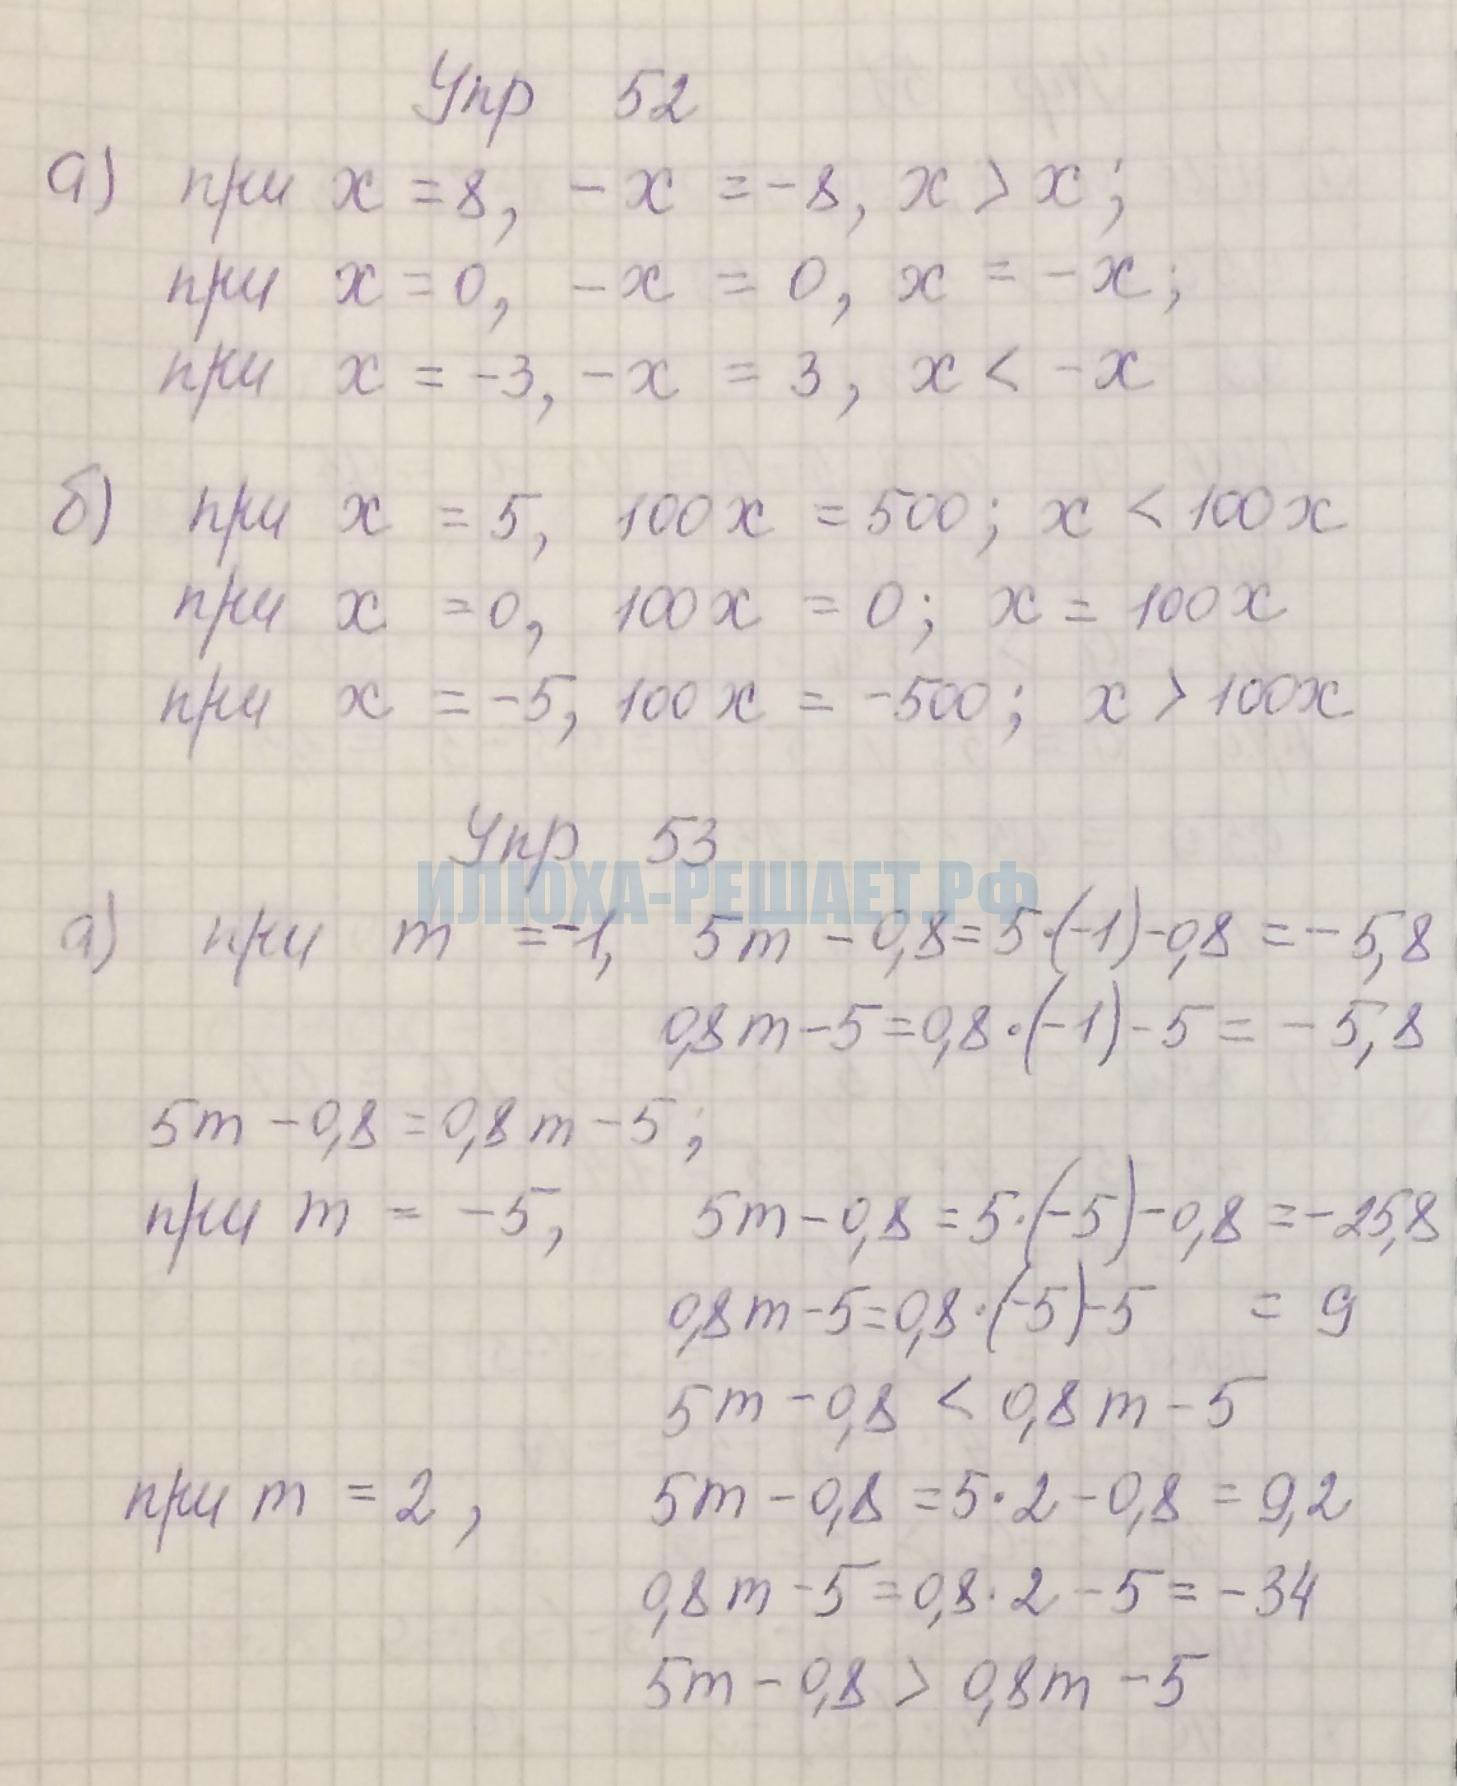 Упр 52
а) при x = 8, -x = -8, x > x;
при x = 0, -x = 0, x = -x;
при x = -3, -x = 3, x < -x
б) при x = 5, 100x = 500; x < 100x
при x = 0, 100x = 0; x = 100x
при x = -5, 100x = -500; x > 100x
Упр 53
ИЛЮХА-РЕШАЕТ.РФ
а) при m = -1, 5m - 0,8 = 5·(-1) - 0,8 = -5,8
0,8m - 5 = 0,8·(-1) - 5 = -5,8
5m - 0,8 = 0,8m - 5;
при m = -5, 5m - 0,8 = 5·(-5) - 0,8 = -25,8
0,8m - 5 = 0,8·(-5) - 5 = 9
5m - 0,8 < 0,8m - 5
при m = 2, 5m - 0,8 = 5·2 - 0,8 = 9,2
0,8m - 5 = 0,8·2 - 5 = -34
5m - 0,8 > 0,8m - 5